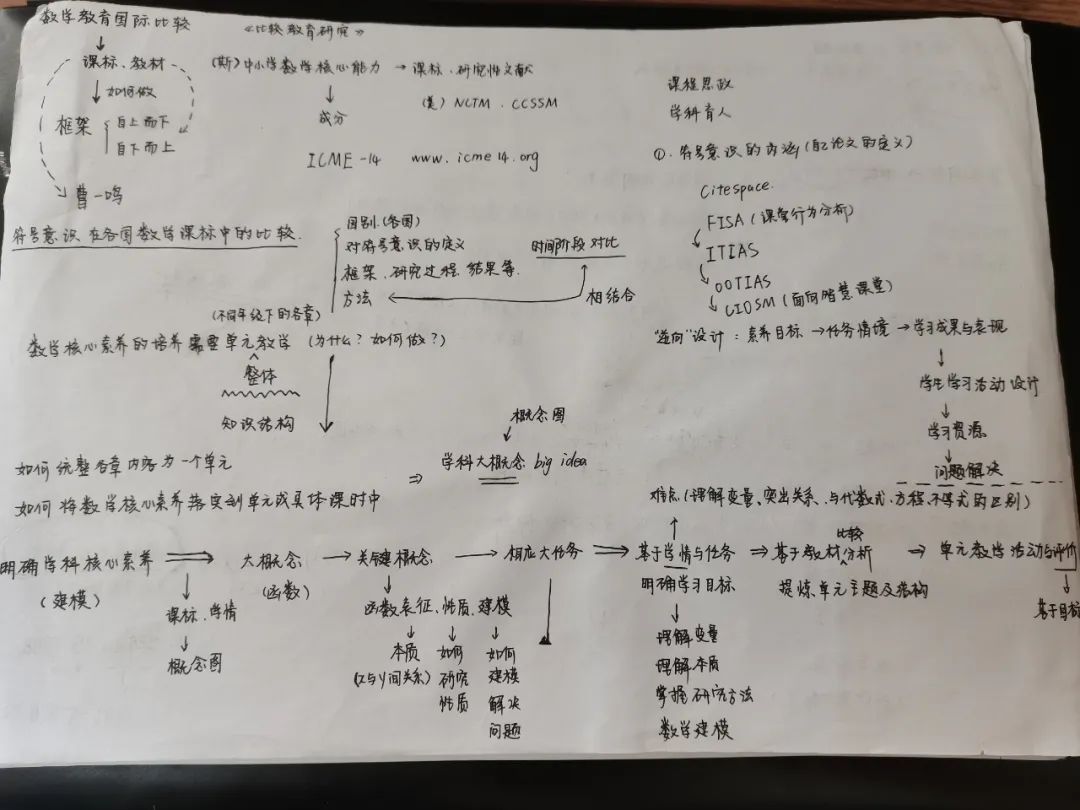 数学教育国际比较
《比较教育研究》
课标、教材
↓如何做
框架 { 自上而下
自下而上
曹一鸣
(斯)中小学数学核心能力 → 课标、研究性文献
↓
成分
(美) NCTM、CCSSM
ICME-14 www.icme14.org
课程思政
学科育人
①. 符号意识的内涵(自己论文的定义)
Citespace.
FISA (课堂行为分析)
ITIAS
OOTIAS
CIOSM (面向智慧课堂)
符号意识在各国数学课标中的比较.
国别.(各国)
对符号意识的定义
框架、研究过程、结果等.
方法
时间阶段对比
相结合
(不同年级下的各章)
数学核心素养的培养需要单元教学 (为什么?如何做?)
整体
知识结构
"逆向"设计:素养目标→任务情境→学习成果与表现
↓
学生学习活动设计
↓
学习资源
↓
问题解决
如何统整各章内容为一个单元
如何将数学核心素养落实到单元或具体课时中
⇒
概念图
学科大概念 big idea
难点(理解变量、突出关系、与代数式、方程、不等式的区别)
明确学科核心素养 ⇒ 大概念 → 关键概念 → 相应大任务 ⇒ 基于学情与任务 ⇒ 基于教材比较分析 ⇒ 单元教学活动与评价
(建模)
(函数)
明确学习目标
提炼单元主题及结构
基于目标
课标、学情
↓
概念图
函数表征、性质、建模
本质
(x与y间关系)
如何
研究
性质
如何
建模
解决
问题
理解变量
理解本质
掌握研究方法
数学建模